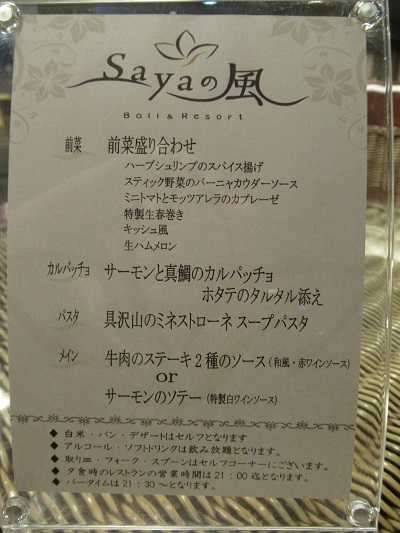 Sayaの風
Bali & Resort
前菜 前菜盛り合わせ
ハーブシュリンプのスパイス揚げ
スティック野菜のバーニャカウダーソース
ミニトマトとモッツアレラのカプレーゼ
特製生春巻き
キッシュ風
生ハムメロン
カルパッチョ サーモンと真鯛のカルパッチョ
ホタテのタルタル添え
パスタ 具沢山のミネストローネ スープパスタ
メイン 牛肉のステーキ2種のソース (和風・赤ワインソース)
or
サーモンのソテー (特製白ワインソース)
◆ 白米・パン・デザートはセルフとなります
◆ アルコール・ソフトドリンクは飲み放題となります。
◆ 取り皿・フォーク・スプーンはセルフコーナーにございます。
◆ 夕食時のレストランの営業時間は21:00迄となります。
◆ バータイムは21:30〜となります。